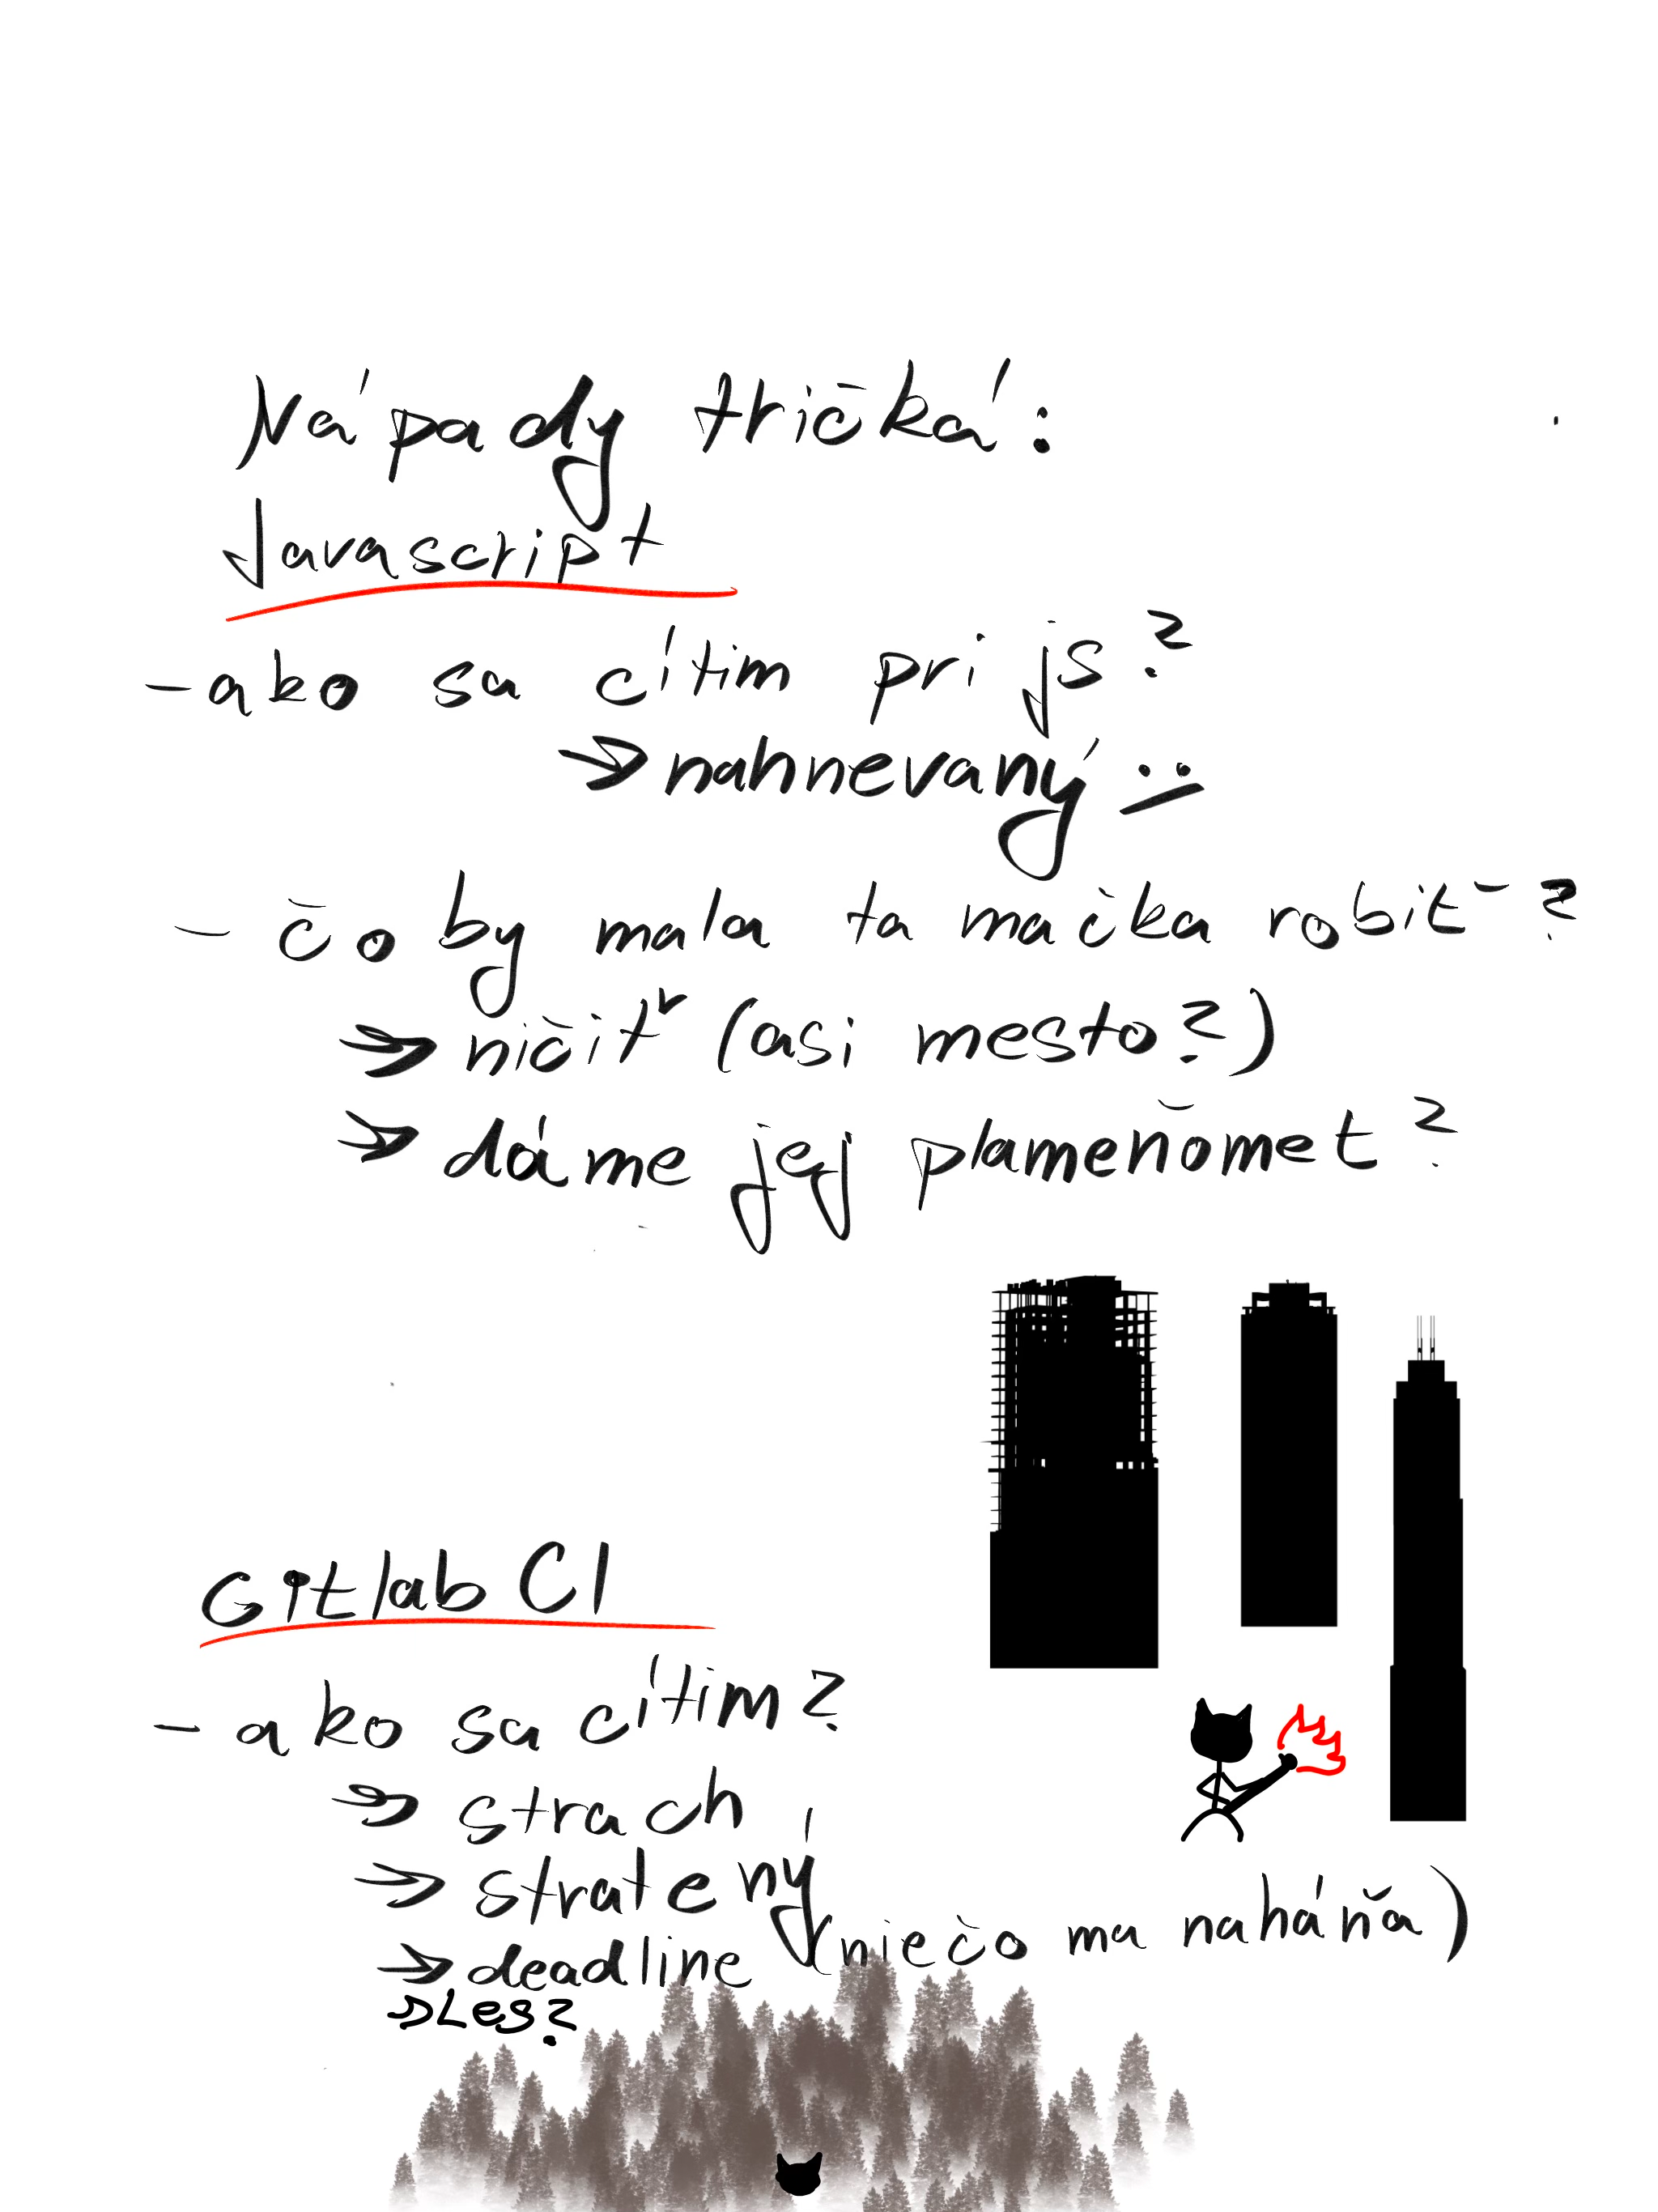 Nápady tričká:
Javascript
- ako sa cítim pri js?
→ nahnevaný :/
- čo by mala ta mačka robiť?
→ ničiť (asi mesto?)
→ dáme jej plameňomet?
Gitlab CI
- ako sa cítim?
→ strach
→ stratený
→ deadline (niečo ma naháňa)
→ Les?